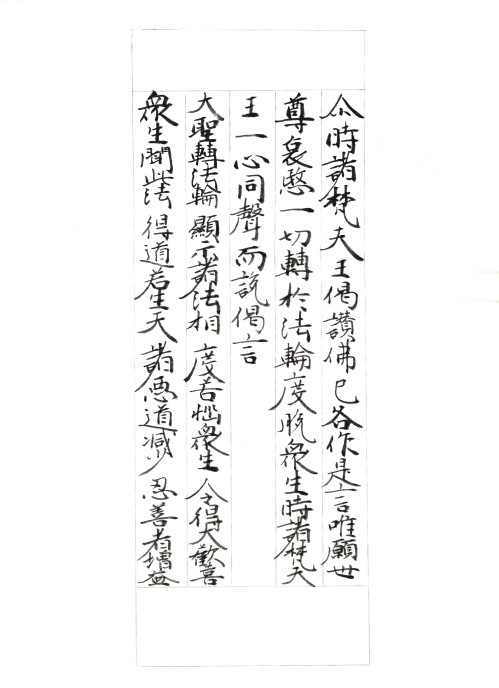 尒時諸梵天王偈讃佛已各作是言唯願世
尊哀愍一切轉於法輪度脱衆生時諸梵天
王一心同聲而説偈言
大聖轉法輪 顯示諸法相 度苦悩衆生 令得大歡喜
衆生聞此法 得道若生天 諸悪道減少 忍善者増益